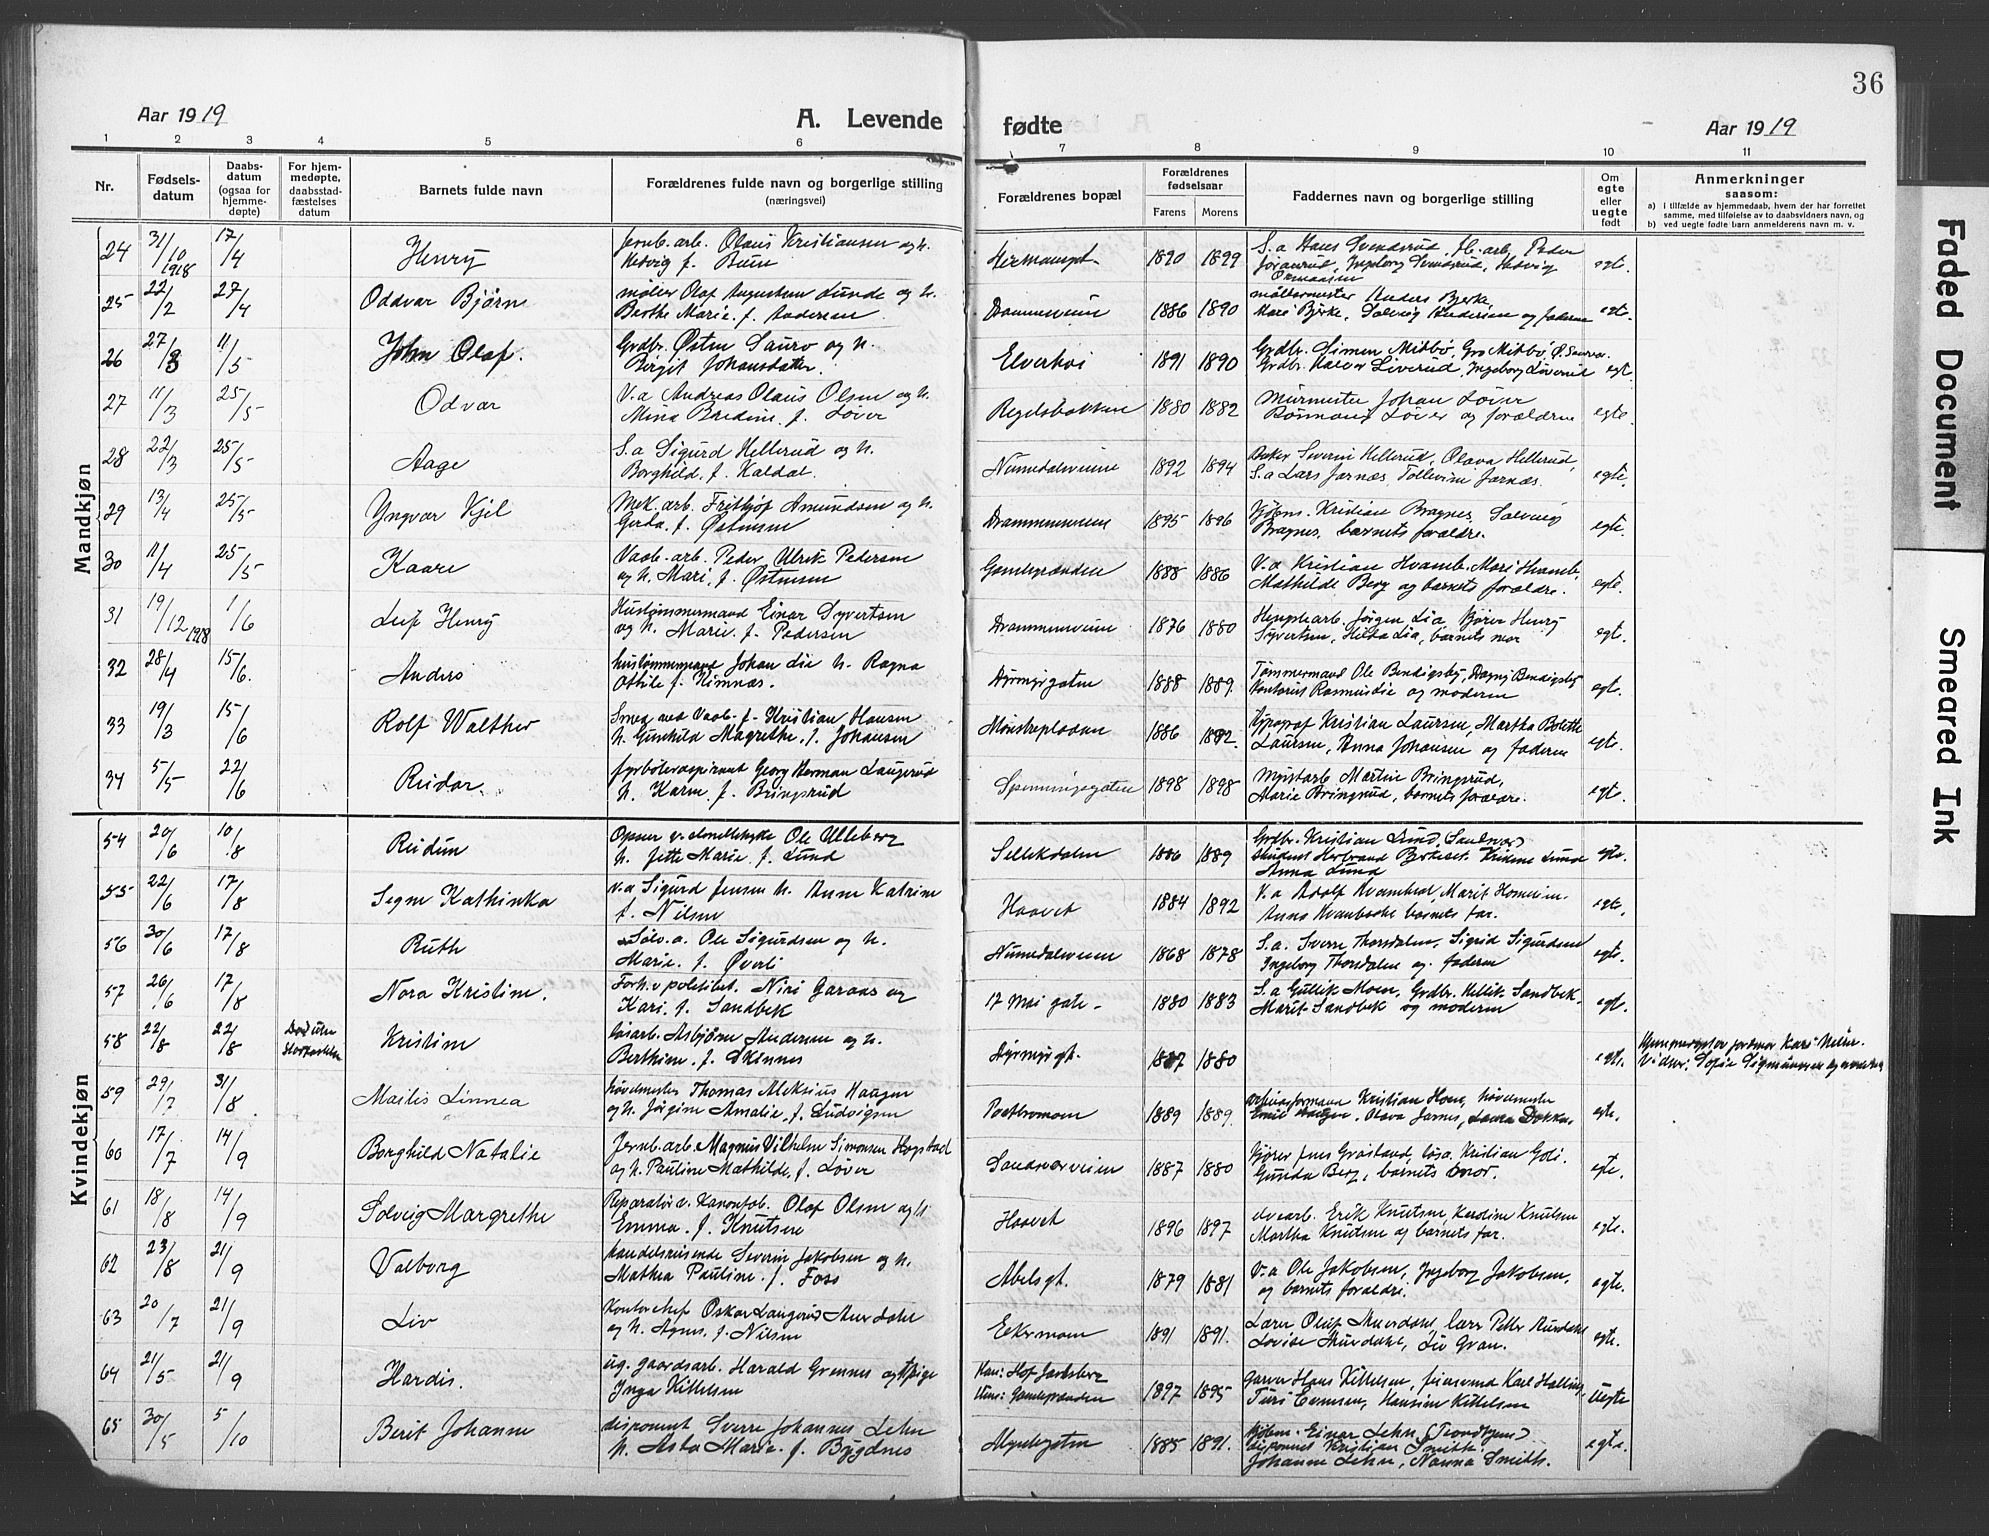 36
Aar 1919
A. Levende fødte
Aar 1919
1 2 3 4 5 6 7 8 9 10 11
Nr.
Fødsels-
datum
Daabs-
datum
(ogsaa for
hjemme-
døpte)
For hjem-
medøpte,
daabsstad-
fæstelses
datum
Barnets fulde navn
Forældrenes fulde navn og borgerlige stilling
(næringsvei)
Forældrenes bopæl
Forældrenes
fødselsaar
Farens Morens
Faddernes navn og borgerlige stilling
Om
egte
eller
uegte
født
Anmerkninger
saasom:
a) I tilfælde av hjemmedaab, hvem der har forrettet
samme, med tilføielse av to daabsvidners navn, og
b) ved uegte fødte barn anmelderens navn m. v.
Mandkjøn
24 31/10 1918 17/4 Henry Jernb. arb. Olaus Kristiansen og h.
Hedvig f. Hermansgt. 1890 1899 S.a Hans Svendsrud, Peder
Ingeborg Svendsrud, Hedvig egte.
25 22/2 27/4 Oddvar Bjørn møller Olaf Augustsen Lunde og h.
Berthe Marie f. Andersen Drammensveien 1886 1890 møllermester Anders Bjerke,
Mari Bjerke, Solveig Andersen og faderen egte.
26 27/3 11/5 John Olaf. Grdbr. Østen Sauro og h.
Birgit Johansdatter. Elverhoi 1891 1890 Grdbr. Simen Mitbø, Gro Mitbø,
Grdbr. Halvor Liverud, Ingeborg Liverud egt.
27 11/3 25/5 Odvar V.a Andreas Olaus Olsen og h.
Mina Bredine f. Løver Regelsbakken 1880 1882 Murmester Johan Løver
Løver og forældrene egte.
28 22/3 25/5 Aage S.a Sigurd Hellerud og h.
Borghild f. Kaldal. Numedalsveien 1892 1894 Severin Hellerud, Olava Hellerud,
S.a Lars Jarnæs, Tollevine Jarnæs. egte.
29 13/4 25/5 Yngvar Kjel Mek. arb. Frithjof Amundsen og h.
Gerda f. Østensen Drammensveien 1895 1896 Kjøbm. Kristian Bragnes, Solveig
Bragnes, barnets forældre. egte.
30 11/4 25/5 Kaare Vaab. arb. Peder Ulrik Pedersen
og h. Mari f. Østensen Gamlegrænden 1888 1886 V.a Kristian Hvamb, Mari Hvamb,
Mathilde Berg og barnets forældre. egte.
31 19/12 1918 1/6 Leif Henry Hustømmermand Einar Syvertsen
og h. Marie f. Pedersen Drammensveien 1876 1880 Jørgen Lia, Kjører Henry
Syvertsen, Lia, barnets mor egte.
32 28/4 15/6. Anders hustømmermand Johan Lie h. Ragna
Ottile f. Kimnæs. Dyrmyrgaten 1888 1889. Tømmermand Ole Bendigsby, Dagny Bendigsby
Kontorist Rasmus Lie og moderen egte.
33 19/3 15/6 Rolf Walther Smed ved Vaab. f. Kristian Hansen
h. Gunhild Magrethe f. Johansen Mønstreplassen 1886 1892. Typograf Kristian Laursen, Martha Bolette
Laursen, Anna Johansen og faderen egte.
34 5/5 22/6 Reidar. fyrbøteraspirant Georg Herman Laugerud
h. Karen f. Bringsrud Spenningsgaten 1898 1898 Martin Bringsrud,
Marie Bringsrud, barnets forældre. egte.
Kvindekjøn
54 20/6 10/8 Reidun Ole Ulleberg
h. Jette Marie f. Lund Sellikdalen 1886 1889 Grdbr. Kristian Lund, Sandsvær
student Herbrand Kristine Lund
Anna Lund egte.
55 22/6 17/8 Segne Kathinka v.a Sigurd Jensen h. Anne Katrine
f. Nilsen Haavet 1884 1892 V.a Adolf Marit
Anna barnets far. egte.
56 30/6 17/8 Ruth Sølv. a. Ole Sigurdsen og h.
Marie f. Øverli Numedalsveien 1868 1878 S.a. Sverre Thorsdalen, Sigrid Sigurdsen
Ingeborg Thorsdalen og faderen egte.
57 26/6 17/8 Nora Kristine. Forh. v politibet. Niri Garaas og
Kari f. Sandbek 17 Mai gate 1880 1883 S.a Gullik Moen, Grdbr. Kittil Sandbek.
Marit Sandbek og moderen egte.
58 22/8 22/8 Død uten Kristine løsarb. Asbjørn Andersen og h.
Berthine f. Skinnes Dyrmyrgt. 1887 1880 egte. Hjemmedøpt av jordmor Kari Nilsen.
Vidner:
59 29/7 31/8 Mailis Linnea hovmester Thomas Aleksius Haagen
og h. Jørgine Amalie f. Ludvigsen Postbromoen 1889 1889 Kristian Hoen, hovmester
Emil Haagen, Olava Jarnes, Laura Dokken. egte.
60 17/7 14/9 Borghild Natalie Jernb. arb. Magnus Vilhelm Simonsen Hogstad
og h. Pauline Mathilde, f. Løver Sandsværveien 1887 1880 Kjører Jens Grostand, løsa. Kristian Goli.
Gunda Berg, barnets mor. egte.
61 18/8 14/9 Solveig Margrethe Reparatør v. Kanonfab. Olaf Olsen og h.
Emma f. Knutsen Haavet 1896 1897 Erik Knutsen, Karoline Knutsen
Martha Knutsen og barnets far. egte.
62 23/8 21/9 Valborg handelsreisende Severin Jakobsen og h.
Mathea Pauline f. Foss Abelsgt. 1879 1881 V.a Ole Jakobsen, Ingeborg Jakobsen,
og barnets forældre. egte.
63 20/7 21/9 Liv Kontorchef Oskar Laugerud Aurdahl
og h. Agnes f. Nilsen Eekermoen 1891 1891. Lærer Oluf Aurdahl, lærer Petter Aurdahl
Lovise Aurdahl, Gran. egte.
64 21/5 21/9 Hardis. ug. gaardsarb. Harald Grennes og pige
Inga Kittelsen Han: Hof Jarlsberg
Hun: Gamlegrænden 1897 1895 garver Hans Kittelsen, Karl Halling,
Turi Evensen, Hansine Kittelsen Uegte
65 30/5 5/10 Berit Johanne disponent Sverre Johannes Lehn
h. Asta Marie f. Bygdnes Myntgaten 1885 1891. kjøbm. Einar Lehn (Trondhjem)
disponent Kristian Smith
Johanne Lehn, Nanna Smith. egte.
Faded Document
Smeared Ink